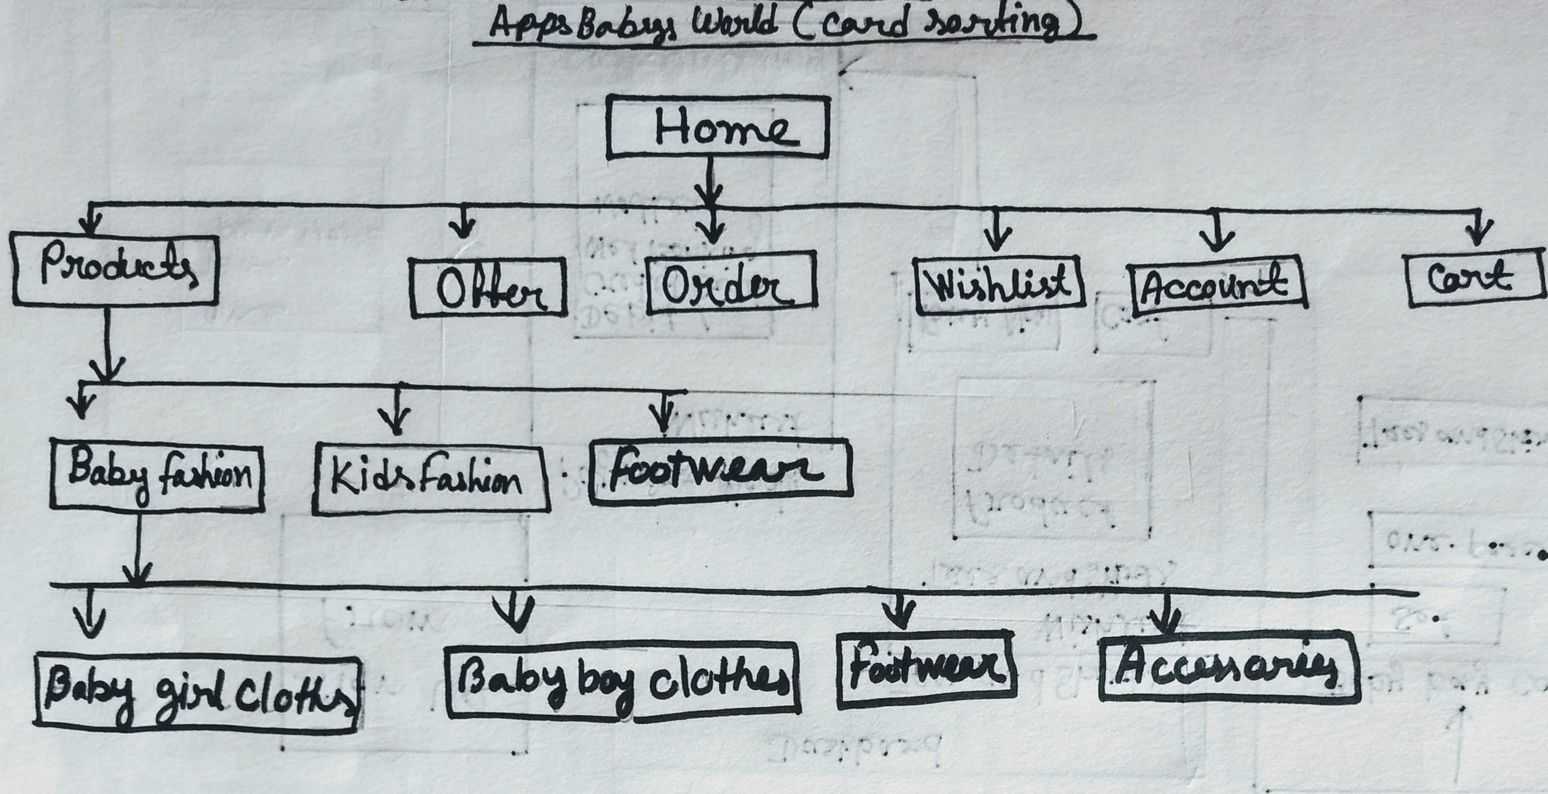 Apps Babys World (card sorting)
Home
Products
Offer
Order
Wishlist
Account
Cart
Baby fashion
Kids fashion
Footwear
Baby girl cloths
Baby boy clothes
Footwear
Accessaries